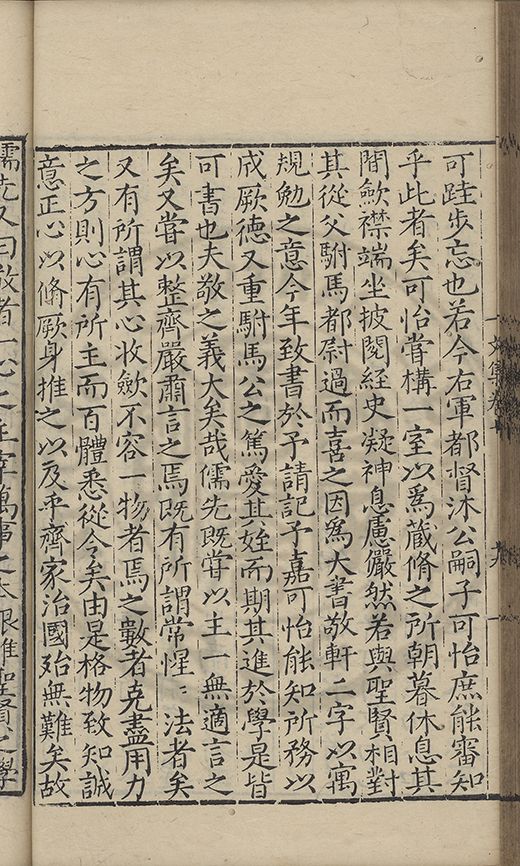 可跬步忘也若今右軍都督沐公嗣子可怡庶能審知
乎此者矣可怡甞構一室以爲藏脩之所朝暮休息其
間歛襟端坐披閱経史凝神息慮嚴然若與聖賢相對
其從父駙馬都尉過而喜之因爲大書敬軒二字以寓
規勉之意今年致書於予請記予嘉可怡能知所務以
成厥德又重駙馬公之篤愛其姪而期其進於學是皆
可書也夫敬之義大矣哉儒先既甞以主一無適言之
矣又甞以整齊嚴肅言之焉既有所謂常惺〻法者矣
又有所謂其心收歛不容一物者焉之數者克盡用力
之方則心有所主而百體悉從令矣由是格物致知誠
意正心以脩厥身推之以及乎齊家治國殆無難矣故
儒先又曰敬者一心之主宰萬事之本根雖聖賢之學